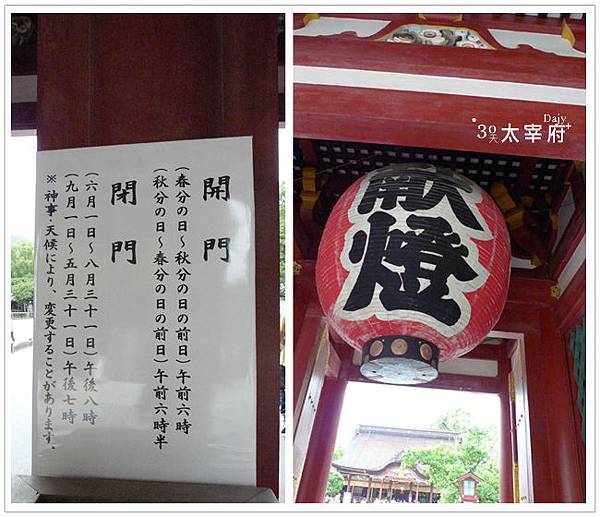 開門
(春分の日〜秋分の日の前日)午前六時
(秋分の日〜春分の日の前日)午前六時半
閉門
(六月一日〜八月三十一日)午後八時
(九月一日〜五月三十一日)午後七時
※神事・天候により、変更することがあります。
Dajy
30天太宰府
献燈